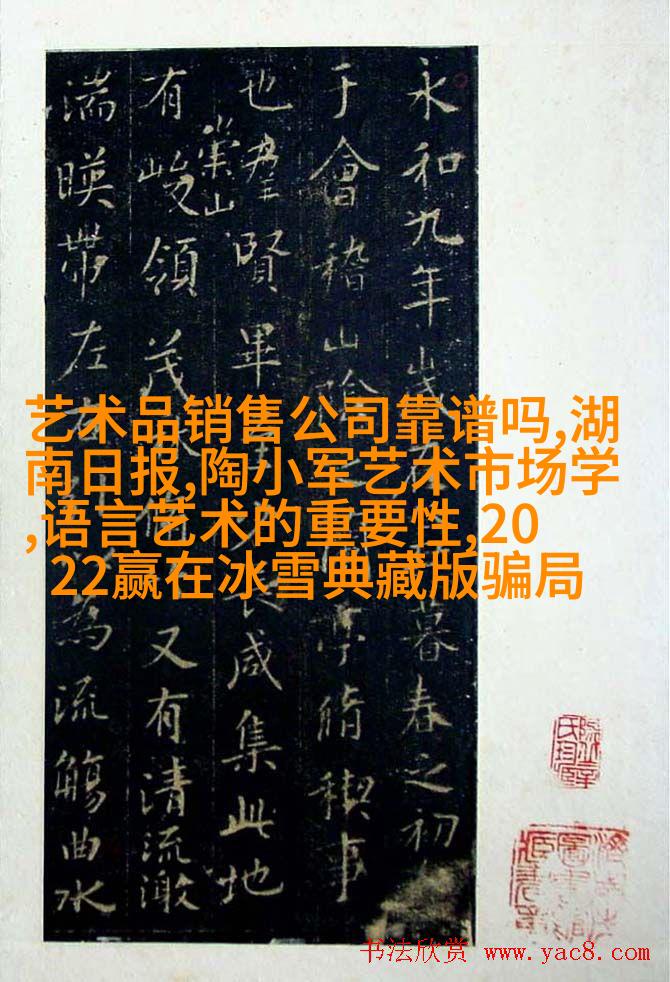 永和九年歲暮春之初
于會稽山陰之亭脩稧事
也羣賢畢至長咸集此地
有崇山峻領茂又有清流激
湍暎帶左右為流觴曲水
艺术品销售公司靠谱吗,湖
南日报,陶小军艺术市场学
,语言艺术的重要性,20
22赢在冰雪典藏版骗局
书法欣赏 www.yac8.com